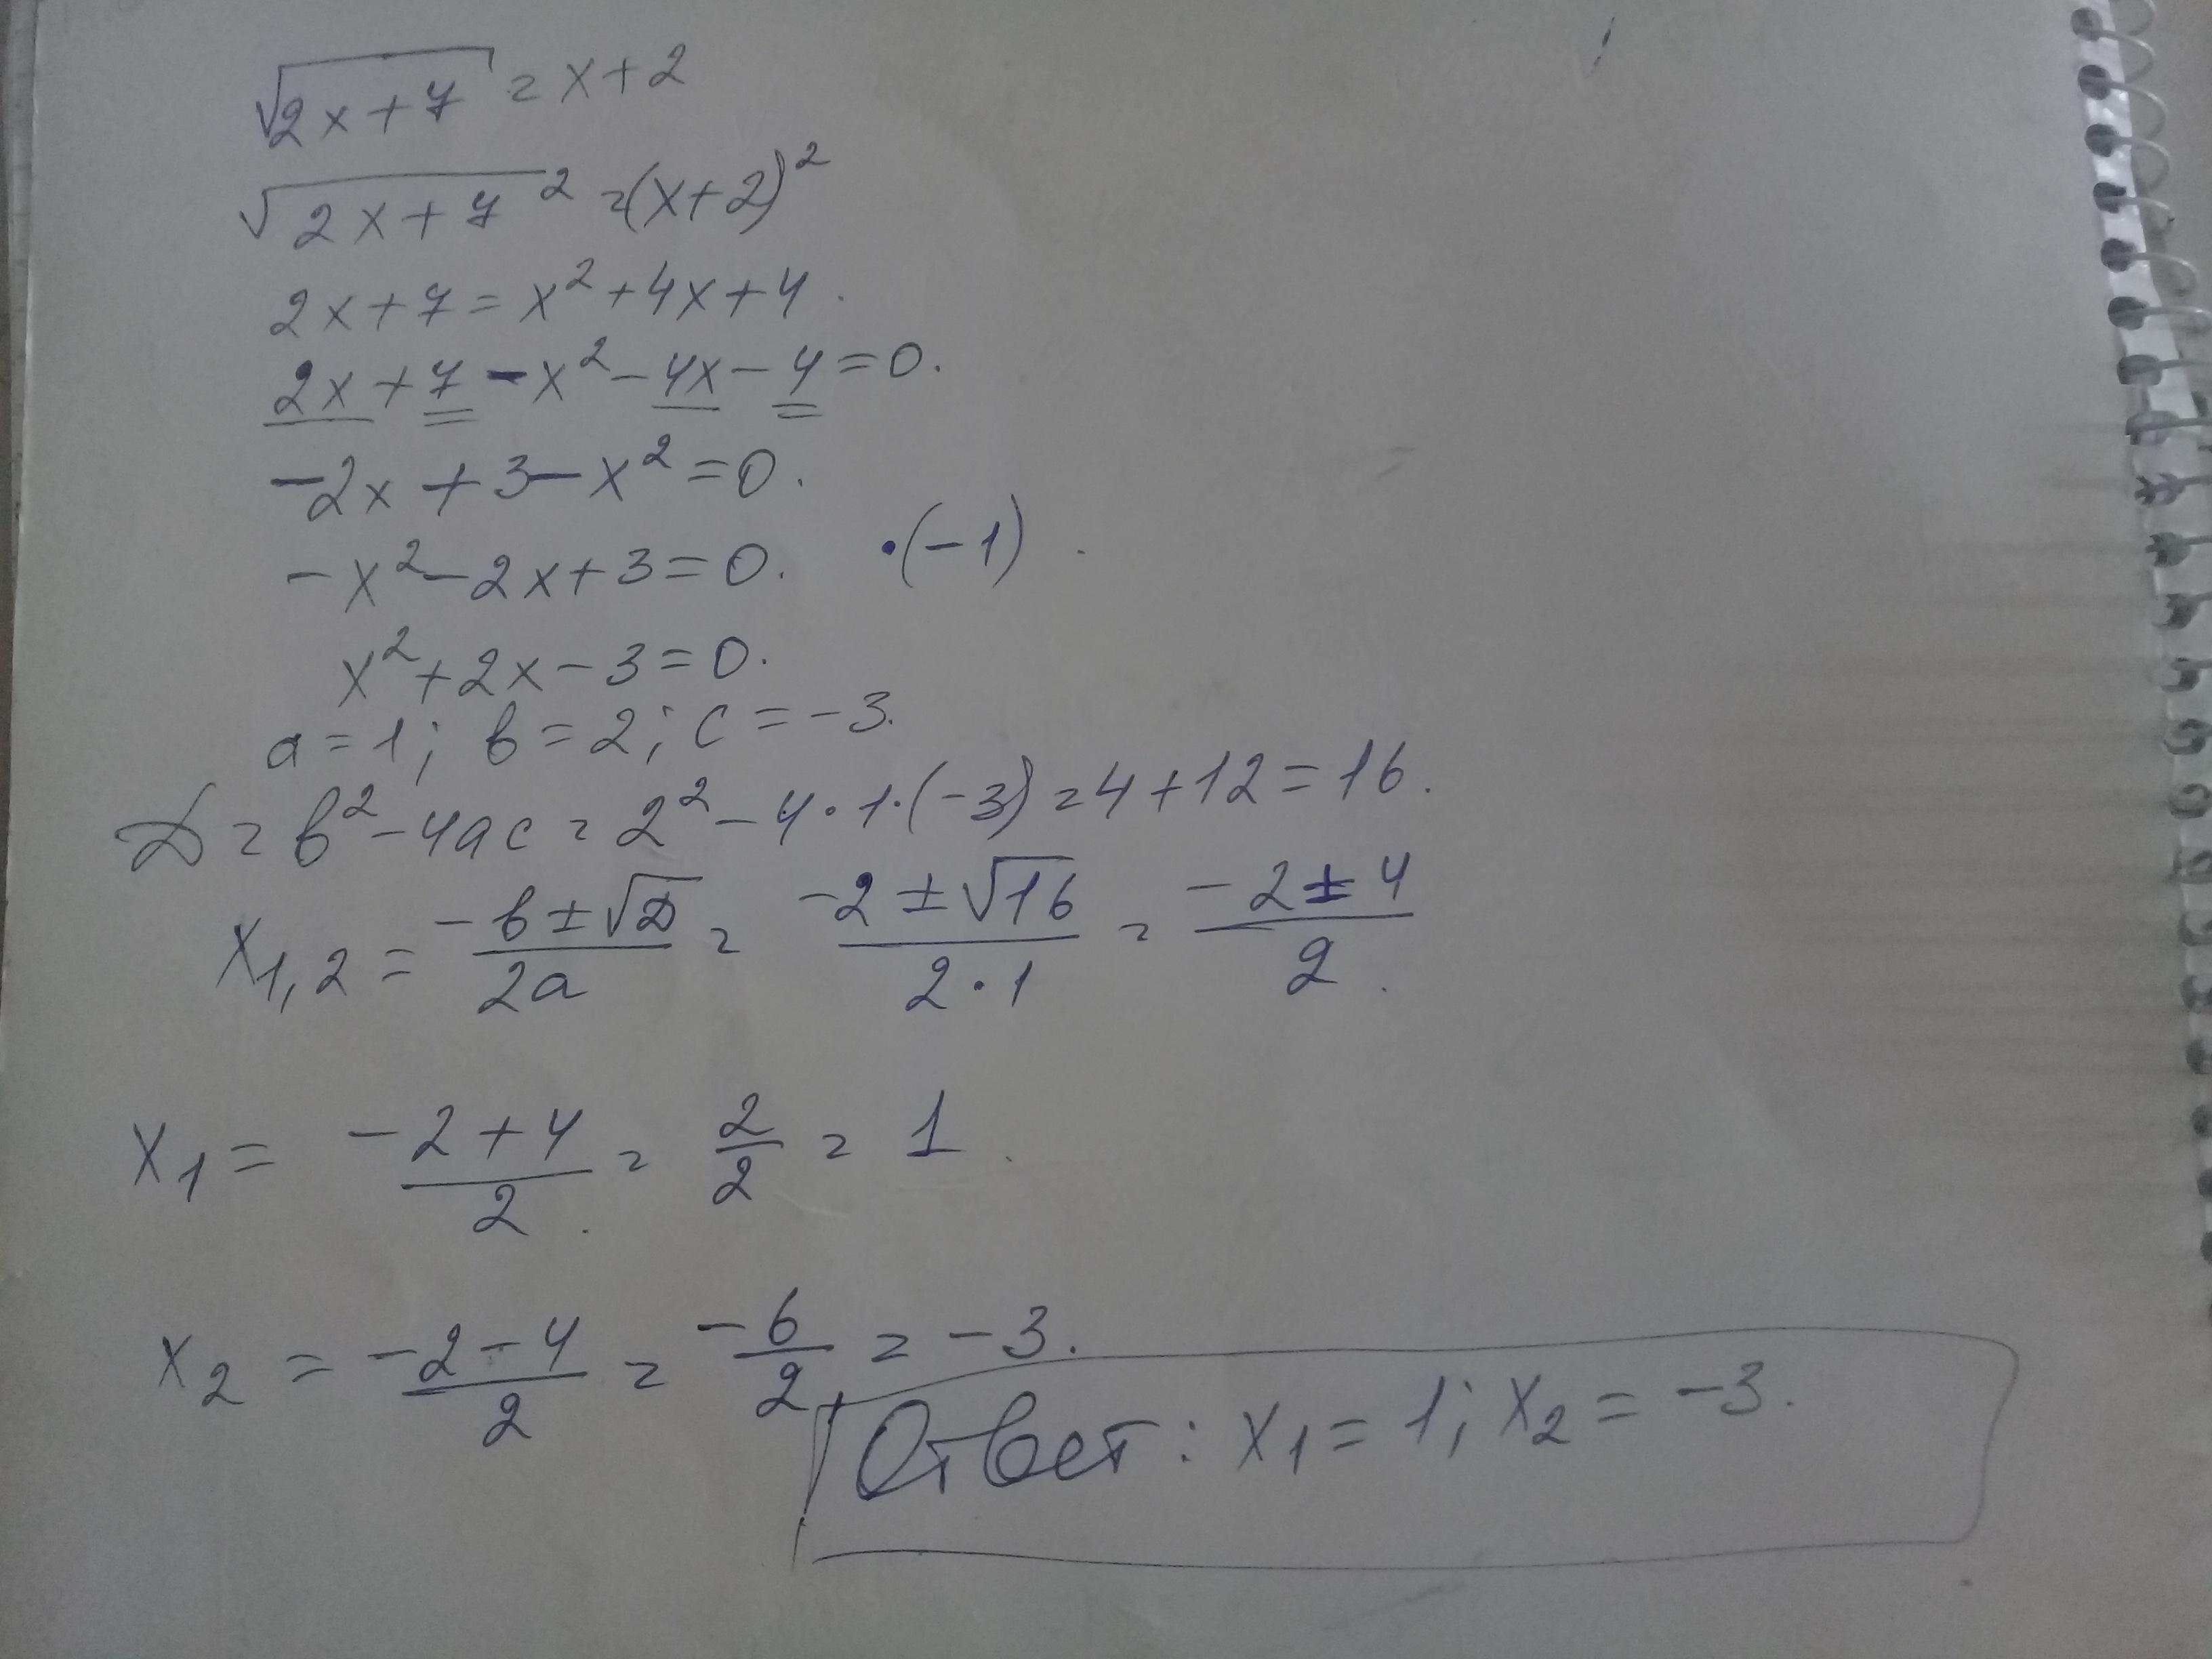 √2x+7 = x+2
√2x+7² = (x+2)²
2x+7 = x²+4x+4.
2x+7-x²-4x-4=0.
-2x+3-x²=0.
-x²-2x+3=0. •(-1)
x²+2x-3=0.
a=1; b=2; c=-3.
D=b²-4ac=2²-4•1•(-3)=4+12=16.
x₁,₂ = (-b±√D)/2a = (-2±√16)/(2•1) = (-2±4)/2.
x₁ = (-2+4)/2 = 2/2 = 1.
x₂ = (-2-4)/2 = -6/2 = -3.
Ответ: x₁=1; x₂=-3.